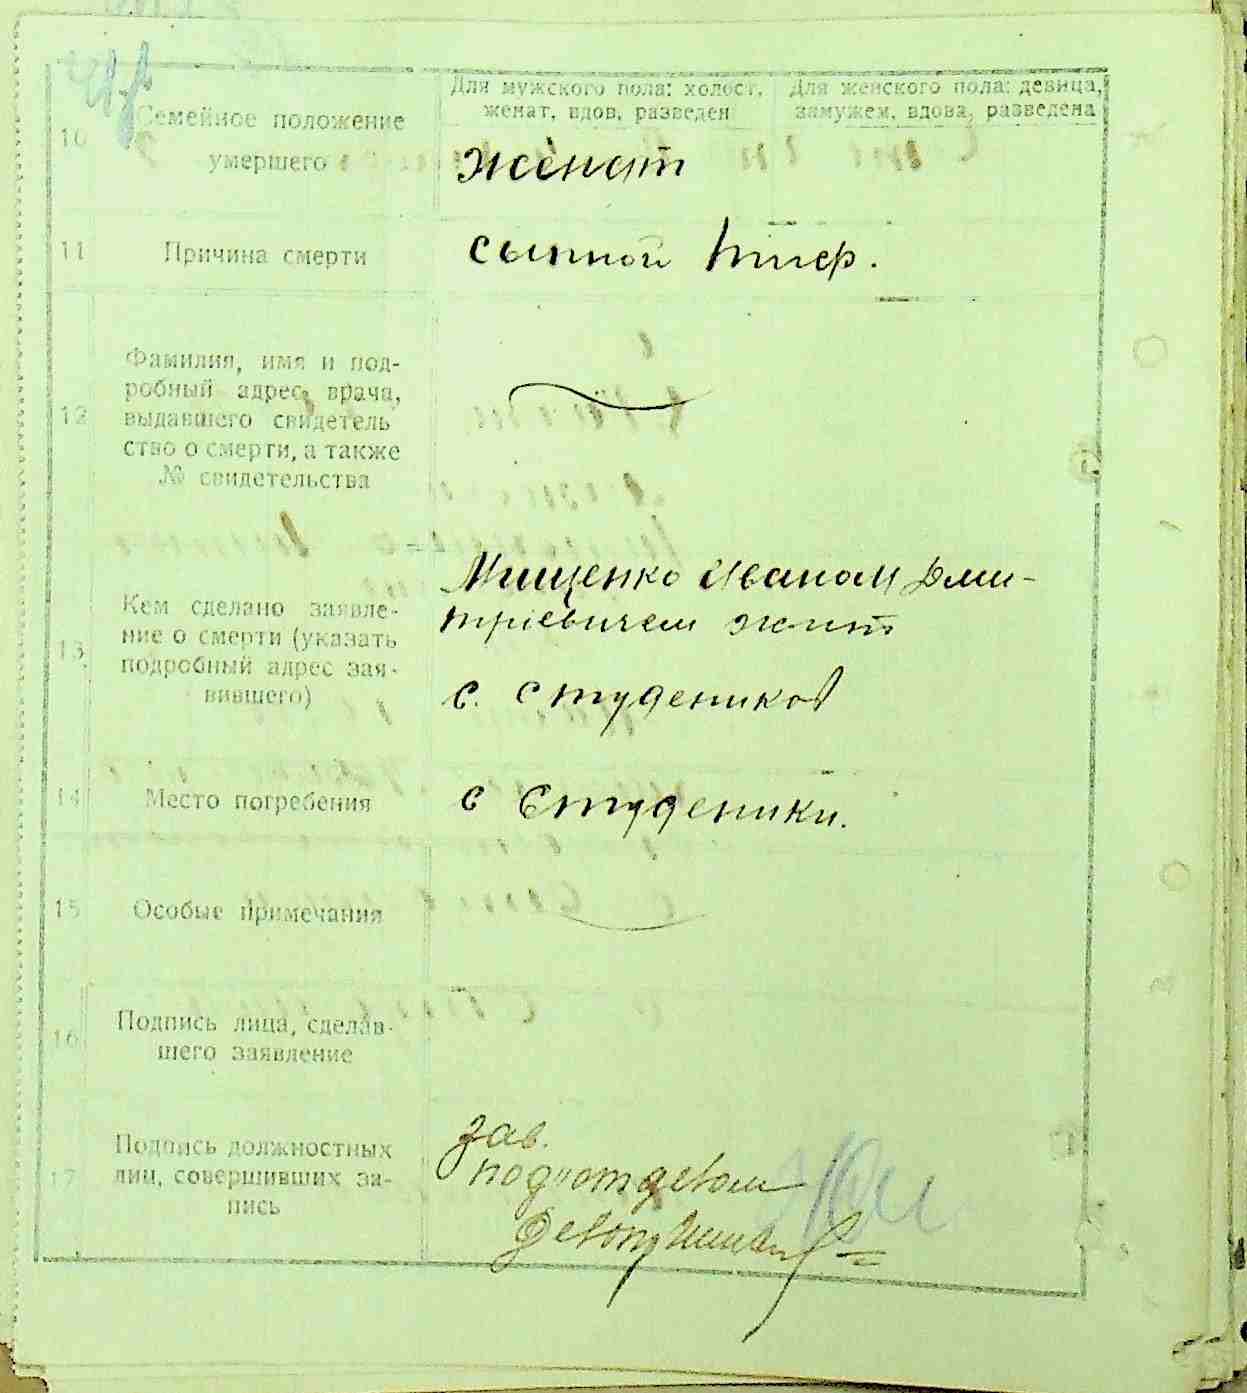 Для мужского пола: холост, женат, вдов, разведен
Для женского пола: девица, замужем, вдова, разведена
10
Семейное положение
умершего
женат
11
Причина смерти
сыпной тиф.
12
Фамилия, имя и под-
робный адрес врача,
выдавшего свидетель
ство о смерти, а также
№ свидетельства
13
Кем сделано заявле-
ние о смерти (указать
подробный адрес зая-
вившего)
Мищенко Иваном Дми-
тріевичем жит
с. Студеников
14
Место погребения
с Студеники.
15
Особые примечания
16
Подпись лица, сделав-
шего заявление
17
Подпись должностных
лиц, совершивших за-
пись
зав.
подотделом